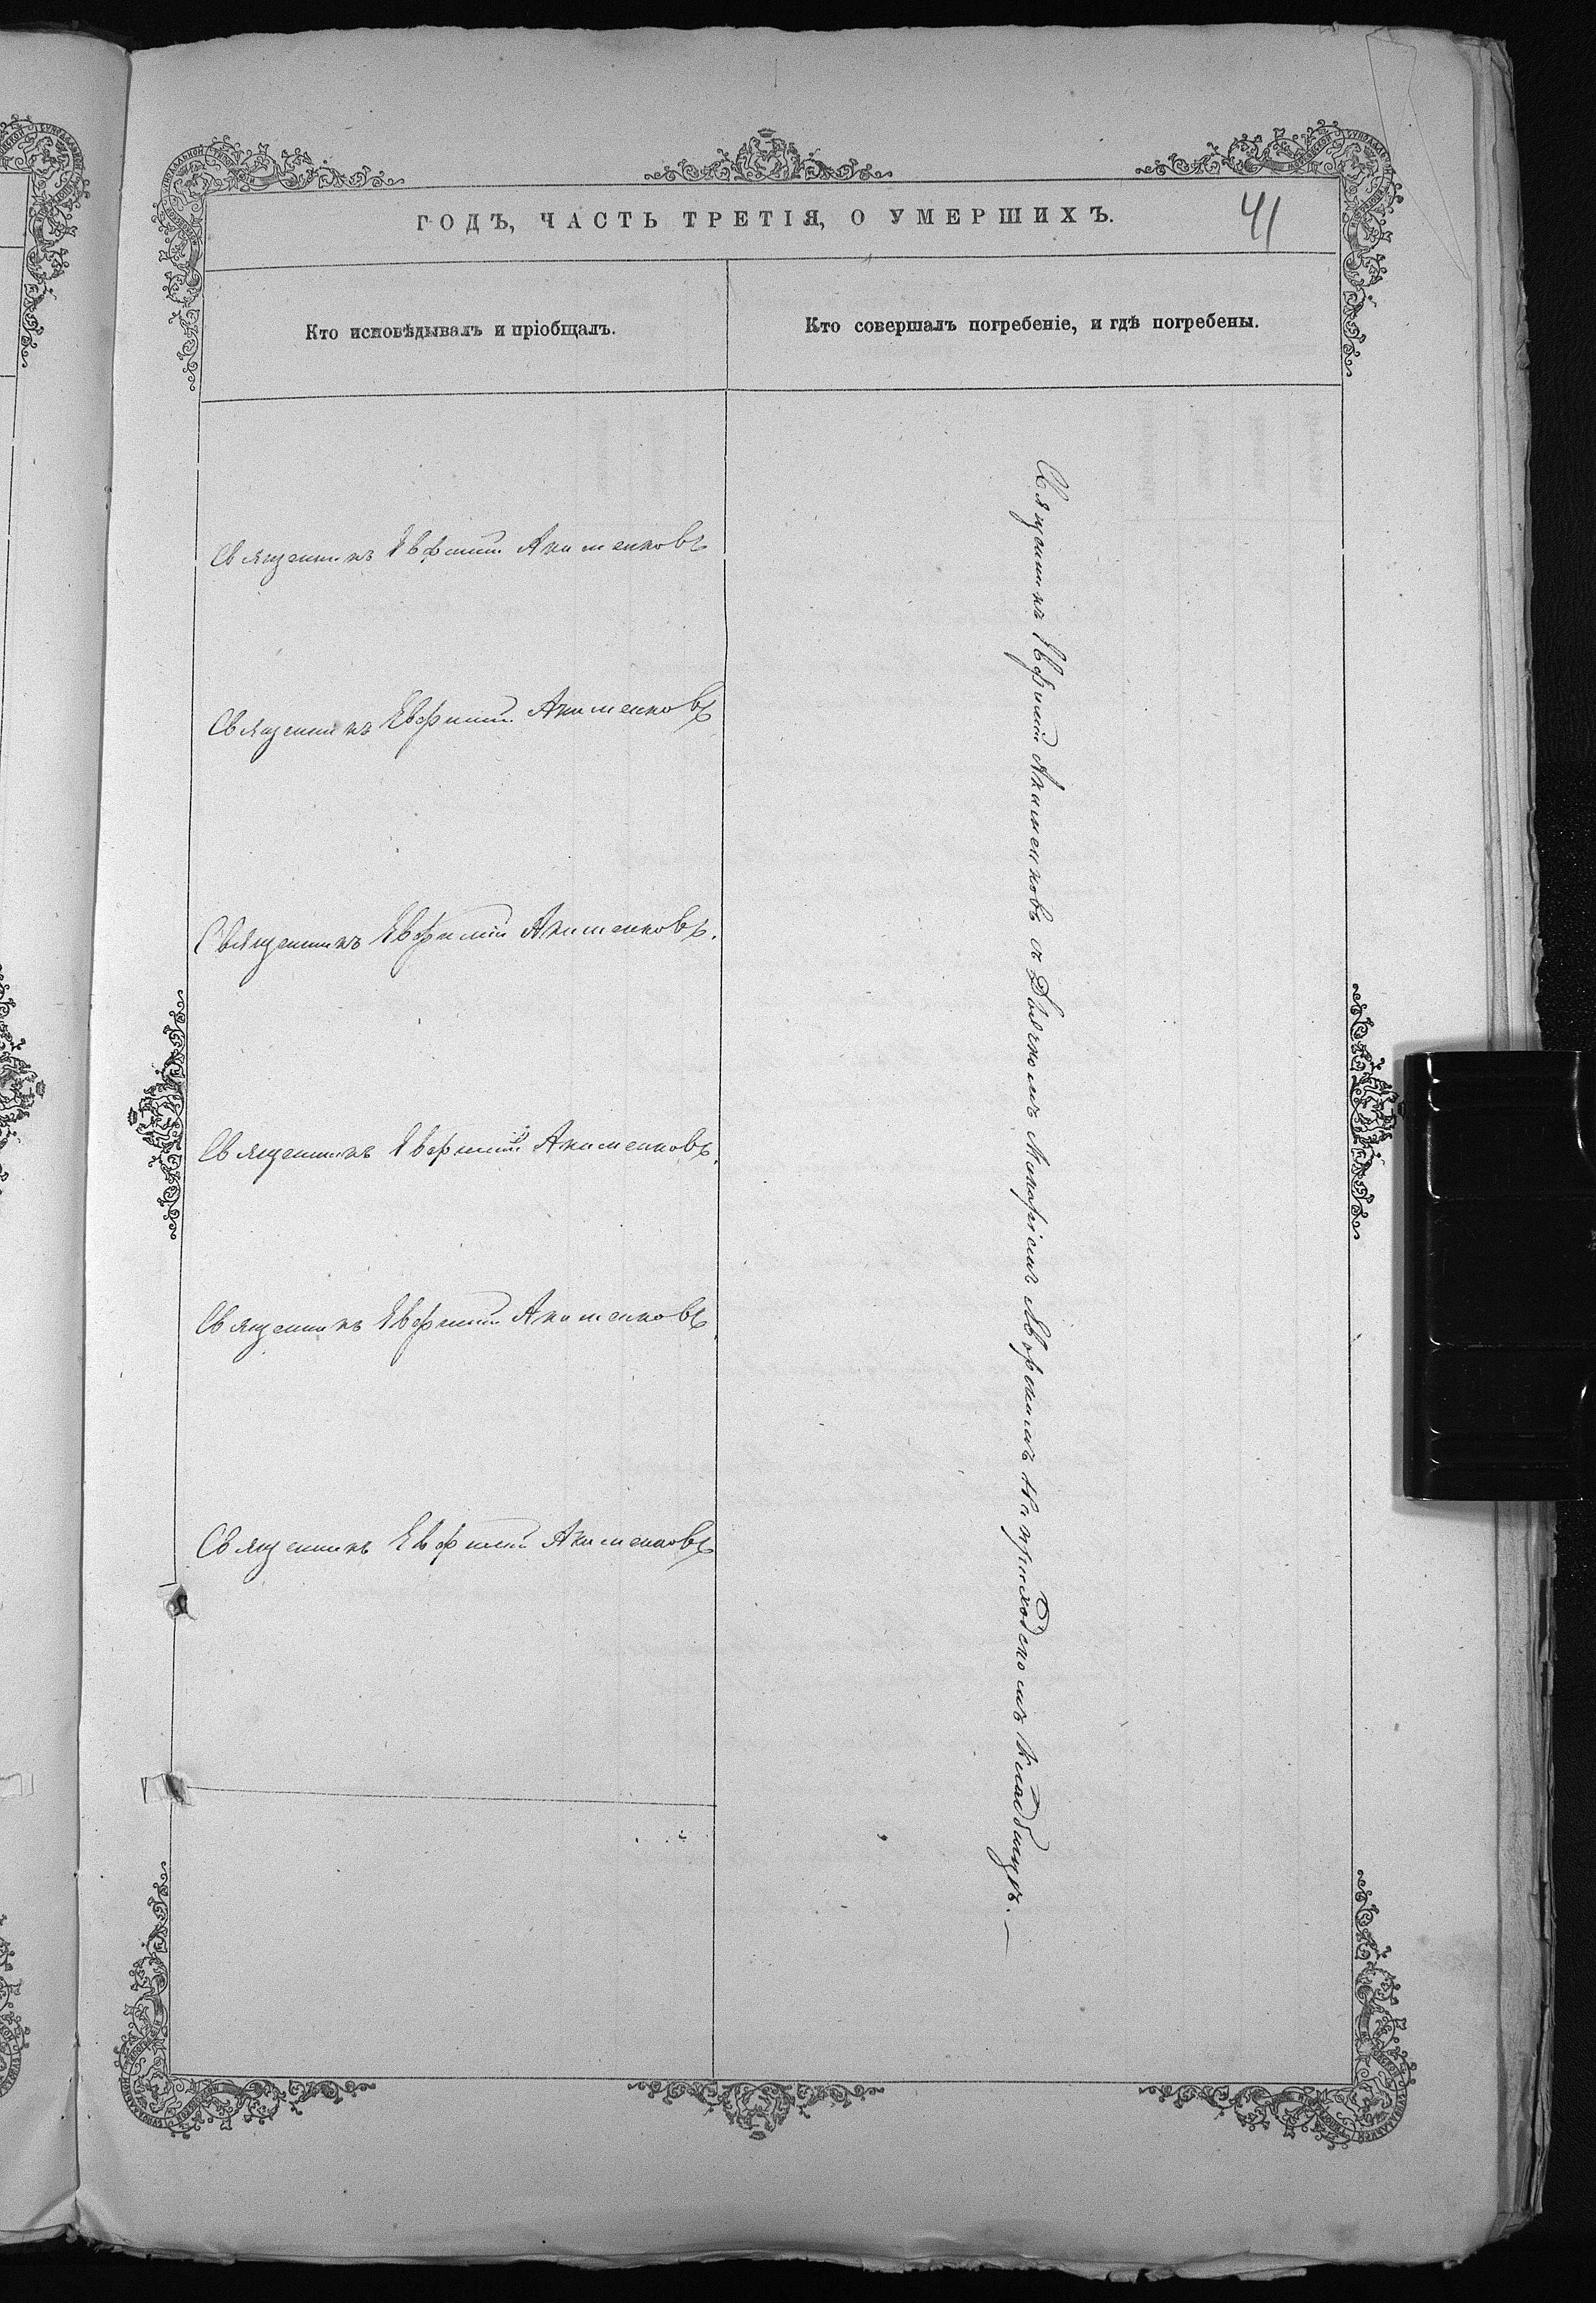 ГОДЪ, ЧАСТЬ ТРЕТІЯ, О УМЕРШИХЪ.
41
Кто исповѣдывалъ и пріобщалъ.
Кто совершалъ погребеніе, и гдѣ погребены.
Священникъ Евфимій Акименковъ
Священникъ Евфимій Акименковъ
Священникъ Евфимій Акименковъ.
Священникъ Евфимій Акименковъ.
Священникъ Евфимій Акименковъ
Священникъ Евфимій Акименковъ
Священникъ Евфимій Акименковъ съ Дьячкомъ на приходскомъ кладбищѣ.